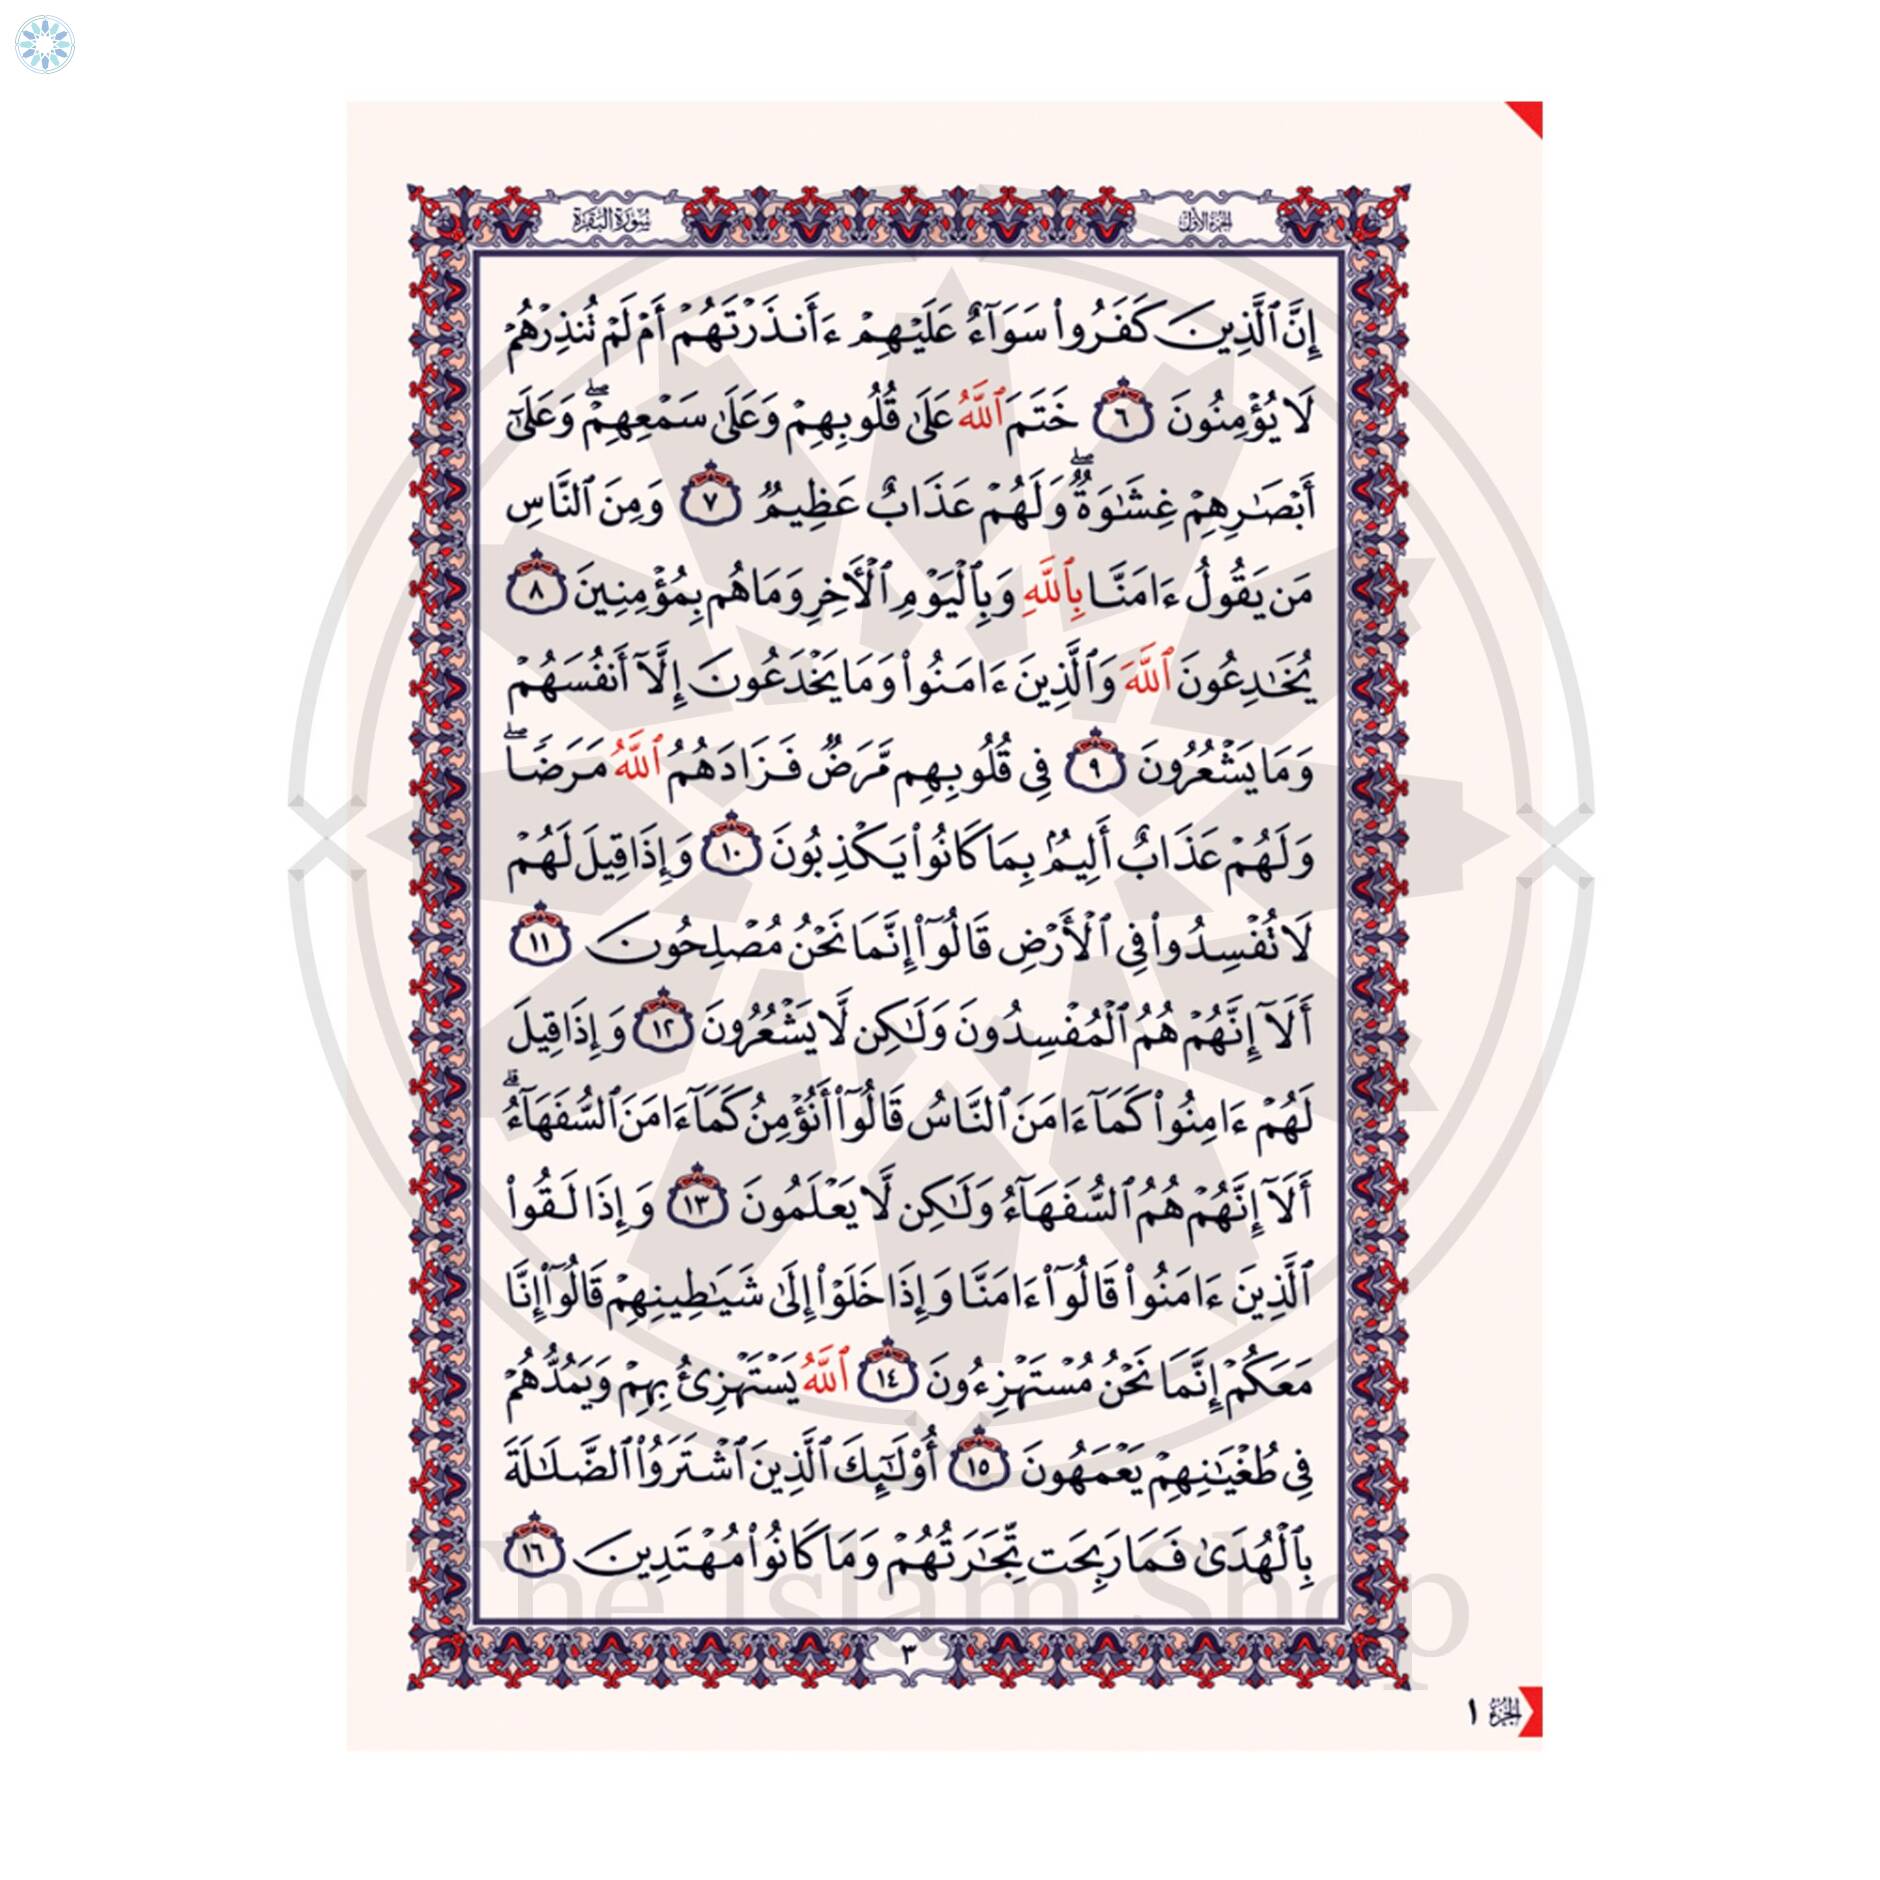 الجزء الأول
سُورَةُ البَقَرَةِ
إِنَّ ٱلَّذِينَ كَفَرُواْ سَوَآءٌ عَلَيۡهِمۡ ءَأَنذَرۡتَهُمۡ أَمۡ لَمۡ تُنذِرۡهُمۡ
لَا يُؤۡمِنُونَ ٦ خَتَمَ ٱللَّهُ عَلَىٰ قُلُوبِهِمۡ وَعَلَىٰ سَمۡعِهِمۡۖ وَعَلَىٰٓ
أَبۡصَٰرِهِمۡ غِشَٰوَةٞۖ وَلَهُمۡ عَذَابٌ عَظِيمٞ ٧ وَمِنَ ٱلنَّاسِ
مَن يَقُولُ ءَامَنَّا بِٱللَّهِ وَبِٱلۡيَوۡمِ ٱلۡأٓخِرِ وَمَا هُم بِمُؤۡمِنِينَ ٨
يُخَٰدِعُونَ ٱللَّهَ وَٱلَّذِينَ ءَامَنُواْ وَمَا يَخۡدَعُونَ إِلَّآ أَنفُسَهُمۡ
وَمَا يَشۡعُرُونَ ٩ فِي قُلُوبِهِم مَّرَضٞ فَزَادَهُمُ ٱللَّهُ مَرَضٗاۖ
وَلَهُمۡ عَذَابٌ أَلِيمُۢ بِمَا كَانُواْ يَكۡذِبُونَ ١٠ وَإِذَا قِيلَ لَهُمۡ
لَا تُفۡسِدُواْ فِي ٱلۡأَرۡضِ قَالُوٓاْ إِنَّمَا نَحۡنُ مُصۡلِحُونَ ١١
أَلَآ إِنَّهُمۡ هُمُ ٱلۡمُفۡسِدُونَ وَلَٰكِن لَّا يَشۡعُرُونَ ١٢ وَإِذَا قِيلَ
لَهُمۡ ءَامِنُواْ كَمَآ ءَامَنَ ٱلنَّاسُ قَالُوٓاْ أَنُؤۡمِنُ كَمَآ ءَامَنَ ٱلسُّفَهَآءُۗ
أَلَآ إِنَّهُمۡ هُمُ ٱلسُّفَهَآءُ وَلَٰكِن لَّا يَعۡلَمُونَ ١٣ وَإِذَا لَقُواْ
ٱلَّذِينَ ءَامَنُواْ قَالُوٓاْ ءَامَنَّا وَإِذَا خَلَوۡاْ إِلَىٰ شَيَٰطِينِهِمۡ قَالُوٓاْ إِنَّا
مَعَكُمۡ إِنَّمَا نَحۡنُ مُسۡتَهۡزِءُونَ ١٤ ٱللَّهُ يَسۡتَهۡزِئُ بِهِمۡ وَيَمُدُّهُمۡ
فِي طُغۡيَٰنِهِمۡ يَعۡمَهُونَ ١٥ أُوْلَٰٓئِكَ ٱلَّذِينَ ٱشۡتَرَوُاْ ٱلضَّلَٰلَةَ
بِٱلۡهُدَىٰ فَمَا رَبِحَت تِّجَٰرَتُهُمۡ وَمَا كَانُواْ مُهۡتَدِينَ ١٦
The Islam Shop
٣
الجزء ١